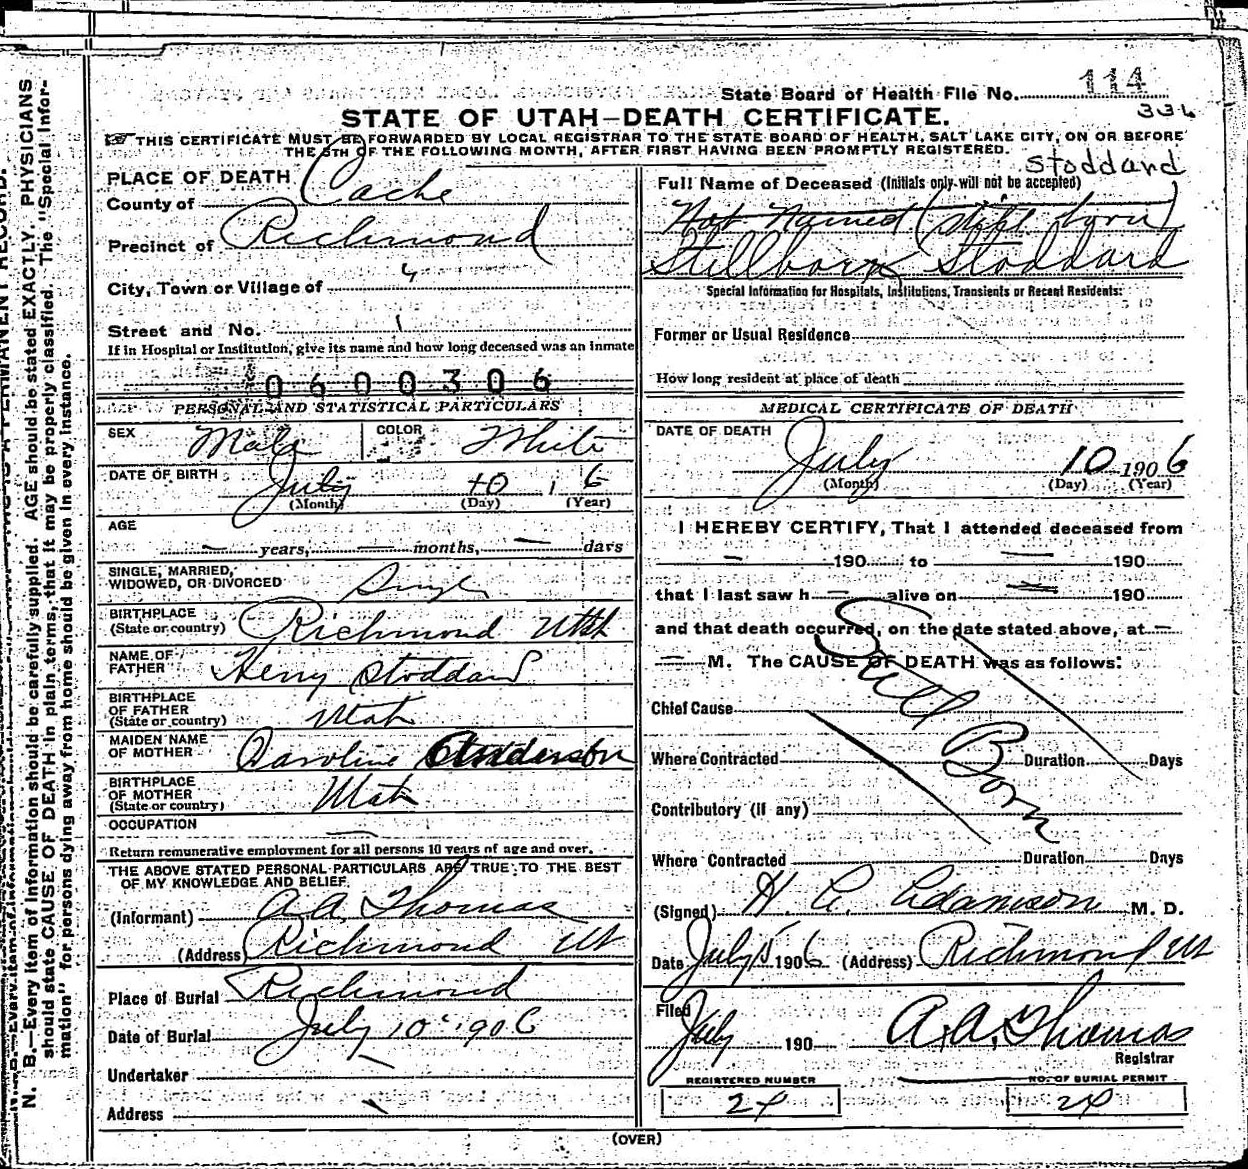 State Board of Health File No. 114
336
STATE OF UTAH—DEATH CERTIFICATE.
THIS CERTIFICATE MUST BE FORWARDED BY LOCAL REGISTRAR TO THE STATE BOARD OF HEALTH, SALT LAKE CITY, ON OR BEFORE
THE 5TH OF THE FOLLOWING MONTH, AFTER FIRST HAVING BEEN PROMPTLY REGISTERED.
PLACE OF DEATH
County of Cache
Precinct of Richmond
City, Town or Village of "
Street and No.
If in Hospital or Institution, give its name and how long deceased was an inmate
0600306
PERSONAL AND STATISTICAL PARTICULARS
SEX Male COLOR White
DATE OF BIRTH July 10 1 6
(Month) (Day) (Year)
AGE
— years, — months, — days
SINGLE, MARRIED,
WIDOWED, OR DIVORCED Single
BIRTHPLACE
(State or country) Richmond Utah
NAME OF
FATHER Henry Stoddard
BIRTHPLACE
OF FATHER
(State or country) Utah
MAIDEN NAME
OF MOTHER Caroline Anderson
BIRTHPLACE
OF MOTHER
(State or country) Utah
OCCUPATION —
Return remunerative employment for all persons 10 years of age and over.
THE ABOVE STATED PERSONAL PARTICULARS ARE TRUE TO THE BEST
OF MY KNOWLEDGE AND BELIEF.
(Informant) A. A. Thomas
(Address) Richmond Ut
Place of Burial Richmond
Date of Burial July 10 1906
Undertaker —
Address
Stoddard
Full Name of Deceased (Initials only will not be accepted)
Not Named (still born)
Stillborn Stoddard
Special Information for Hospitals, Institutions, Transients or Recent Residents:
Former or Usual Residence
How long resident at place of death
MEDICAL CERTIFICATE OF DEATH
DATE OF DEATH
July 10 1906
(Month) (Day) (Year)
I HEREBY CERTIFY, That I attended deceased from
— 190 to — 190
that I last saw h — alive on — 190
and that death occurred, on the date stated above, at —
— M. The CAUSE OF DEATH was as follows:
Still Born
Chief Cause
Where Contracted Duration Days
Contributory (if any)
Where Contracted Duration Days
(Signed) H. C. Adamson M. D.
Date July 15 1906 (Address) Richmond Ut
Filed
July 190 A. A. Thomas
Registrar
REGISTERED NUMBER NO. OF BURIAL PERMIT
24 24
(OVER)
N. B.—Every item of information should be carefully supplied. AGE should be stated EXACTLY. PHYSICIANS
should state CAUSE OF DEATH in plain terms, that it may be properly classified. The "Special Infor-
mation" for persons dying away from home should be given in every instance.